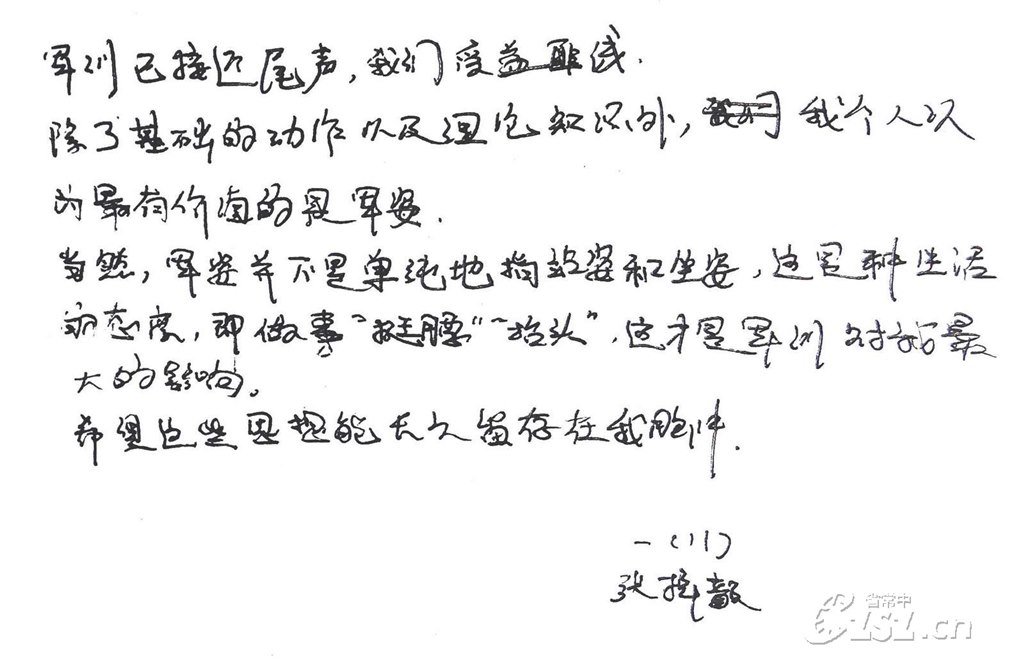 军训已接近尾声，我们受益匪浅.
除了基础的动作以及理论知识外，我个人认
为最有价值的是军姿.
当然，军姿并不是单纯地指站姿和坐姿，这是种生活
的态度，即做事“挺腰”“抬头”，这才是军训对我最
大的影响。
希望这些思想能长久留存在我脑中.
一(11)
张
省常中
CSLSZ.cn